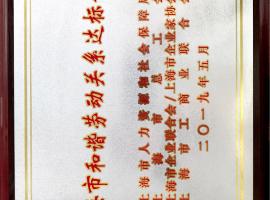 市和谐劳动关系达标
上海市人力资源和社会保障局
上海市总工会
上海市企业联合会/上海市企业家协会
上海市工商业联合会
二〇一九年五月